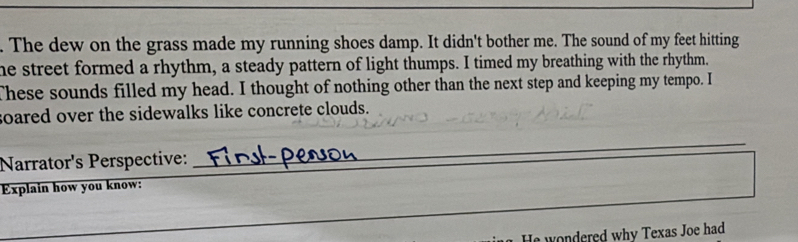 . The dew on the grass made my running shoes damp. It didn't bother me. The sound of my feet hitting
he street formed a rhythm, a steady pattern of light thumps. I timed my breathing with the rhythm.
These sounds filled my head. I thought of nothing other than the next step and keeping my tempo. I
soared over the sidewalks like concrete clouds.
Narrator's Perspective: First-person
Explain how you know:
He wondered why Texas Joe had